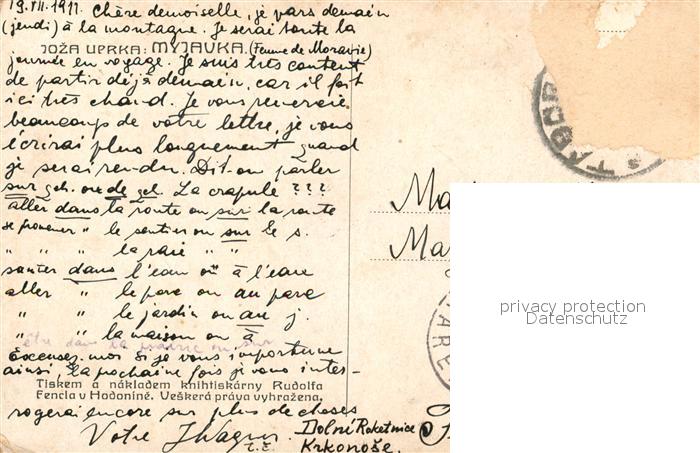 19.VII.1911. Chère demoiselle, je pars demain
(jeudi) à la montagne. Je serai toute la
JOŽA UPRKA: MYJAVKA. (Femme de Moravie)
journée en voyage. Je suis très content
de partir déjà demain, car il fait
ici très chaud. Je vous remercie
beaucoup de votre lettre, je vous
écrirai plus longuement quand
je serai rendu. Dit-on parler
sur qch. ou de qch. La crapule ???
aller dans la route ou sur la route
se promener " le sentier ou sur le s.
" " la raie " "
sauter dans l'eau ou à l'eau
aller " le parc ou au parc
" " le jardin ou au j.
" " la maison ou à
être dans la prairie ou sur
Excusez-moi si je vous importune
ainsi, la prochaine fois je vous inter-
Tiskem a nákladem knihtiskárny Rudolfa
Fencla v Hodoníně. Veškerá práva vyhražena.
rogerai encore sur plus de choses
Votre JWagner
t.č. Dolní Roketnice
Krkonoše.
TÁBOR
Ma
Ma
privacy protection
Datenschutz